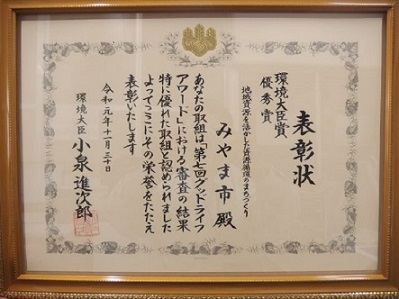 表彰状
環境大臣賞
優秀賞
地域資源を活かした資源循環のまちづくり
みやま市 殿
あなたの取組は「第七回グッドライフ
アワード」における審査の結果
特に優れた取組と認められました
よってここにその栄誉をたたえ
表彰いたします
令和元年十一月三十日
環境大臣 小泉進次郎